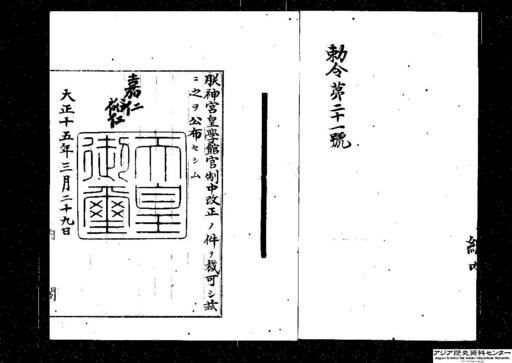 勅令第二十一號
朕神宮皇學館官制中改正ノ件ヲ裁可シ茲
ニ之ヲ公布セシム
嘉仁
裕仁
大正十五年三月二十九日
天皇
御璽
内閣
アジア歴史資料センター
Japan Center for Asian Historical Records